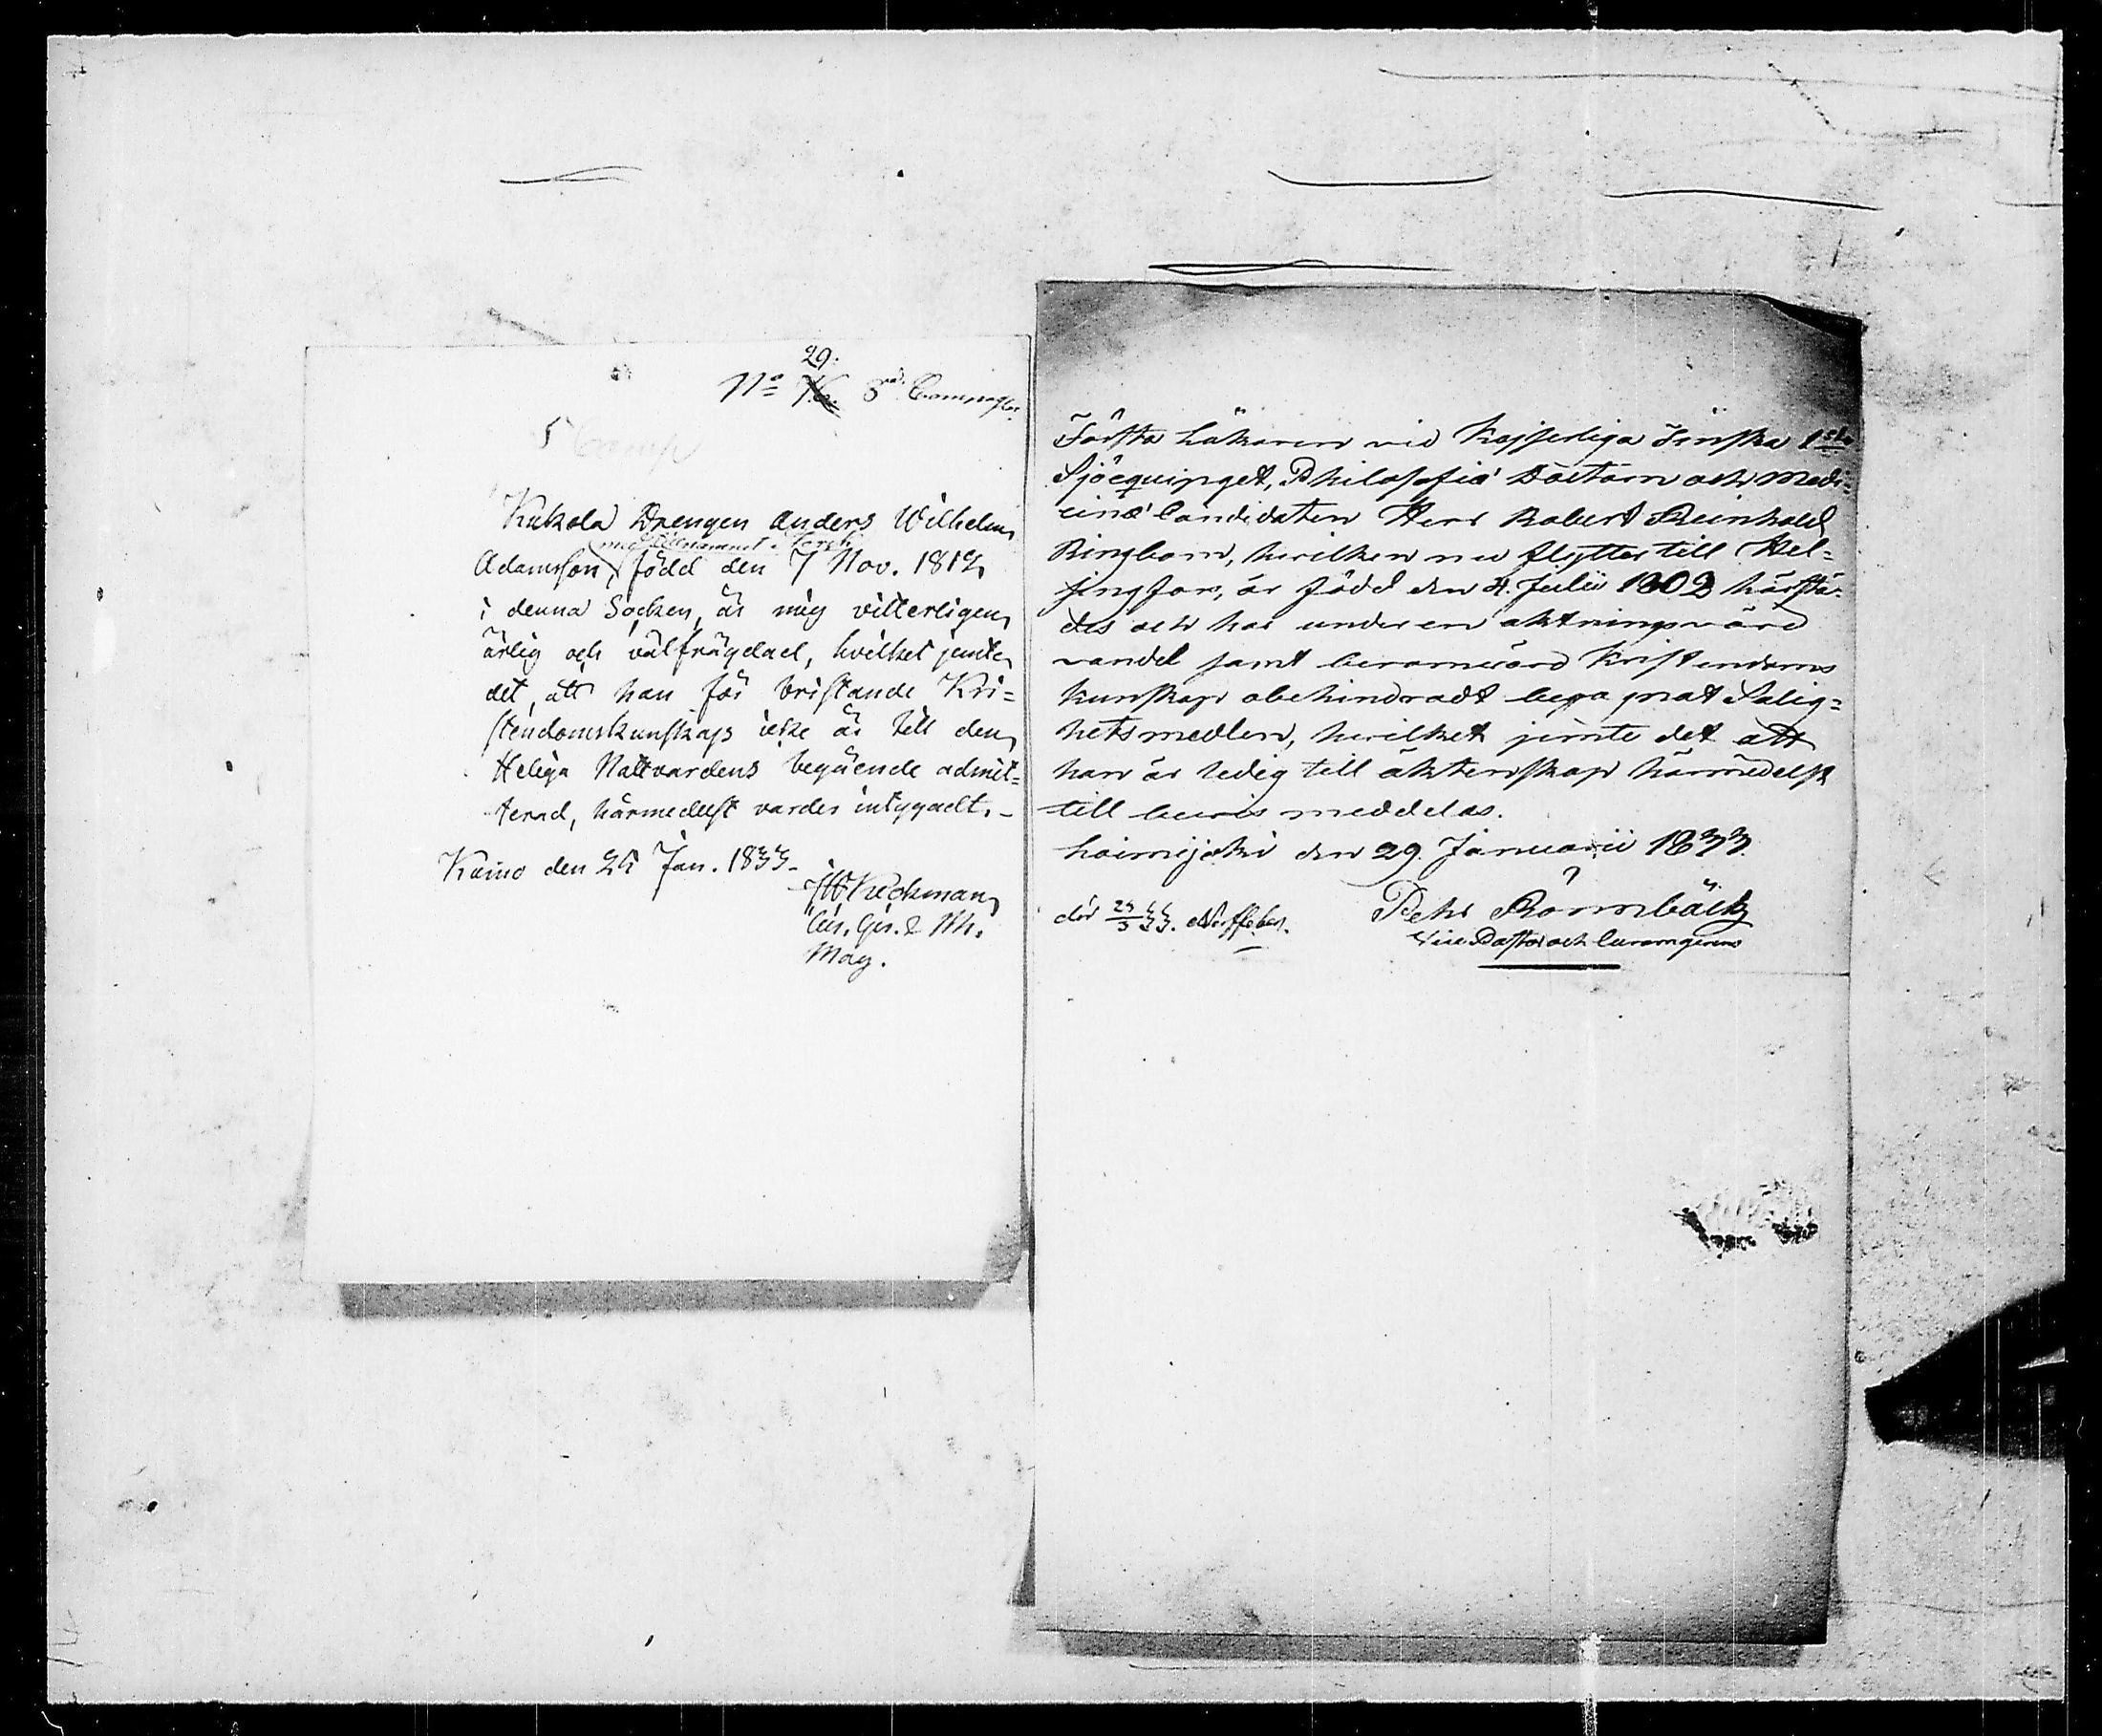 29.
No 76. 8de Compagn.
5 Comp
Kukola Drengen Anders Wilhelm
med tillnamnet
Adamsson, född den 7 Nov. 1812
i denna Socken, är mig vitterligen
ärlig och välfrägdad, hvilket jemte
det, att han för bristande Kri=
stendomskunskap icke är till den
Heliga Nattvardens begående admit=
terad, härmedelst varder intygadt. -
Kumo den 25 Jan. 1833 -
Keckman
Mag.
Första Läkaren vid Kejserliga Finska 1sta
Sjöequipaget, Philosofiæ Doctorn och Medi=
cinæ Candidaten Herr Robert Reinhold
Ringbom, hvilken nu flyttar till Hel=
singfors, är född den 4. Julii 1802 härstä-
des och har under en aktningsvärd
vandel samt berömvärd Kristendoms
kunskap obehindradt begagnat Salig=
hetsmedlen, hvilket jemte det att
han är ledig till äktenskap härmedelst
till bevis meddelas.
Loimijoki den 29. Januarii 1833.
Petr Rönnbäck
Vice Pastor och Curamgerens
död 24/3 33. Nerffeber.